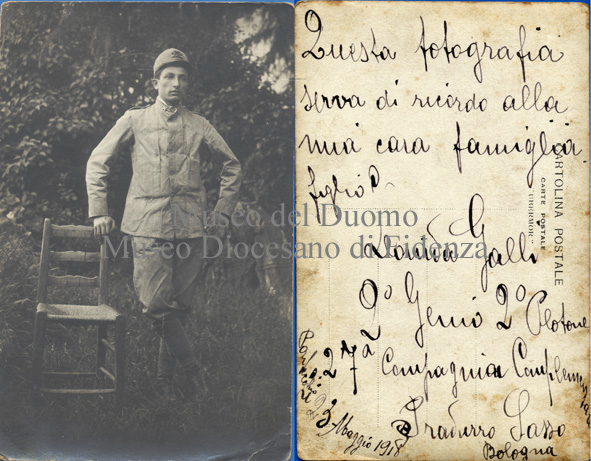 Museo del Duomo
Museo Diocesano di Fidenza
Questa fotografia
serva di ricordo alla
mia cara famiglia
figlio
Galli
2º Genio 2º Plotone
27ª Compagnia Complementare
Praduro Sasso
Bologna
23 Maggio 1918
CARTOLINA POSTALE
CARTE POSTALE